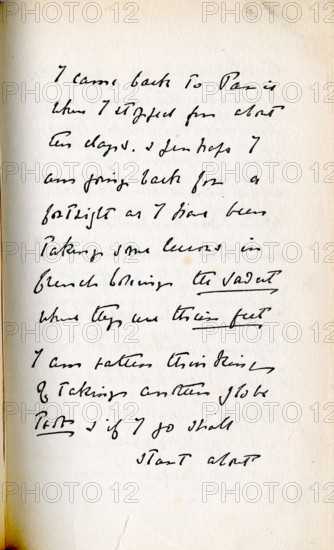 I came back to Paris
where I stopped for about
ten days. & perhaps I
am going back for a
fortnight as I have been
taking some lessons in
french boxing the savat
where they use their feet
I am rather thinking
of taking another globe
Trot & if I go shall
start about
PHOTO 12